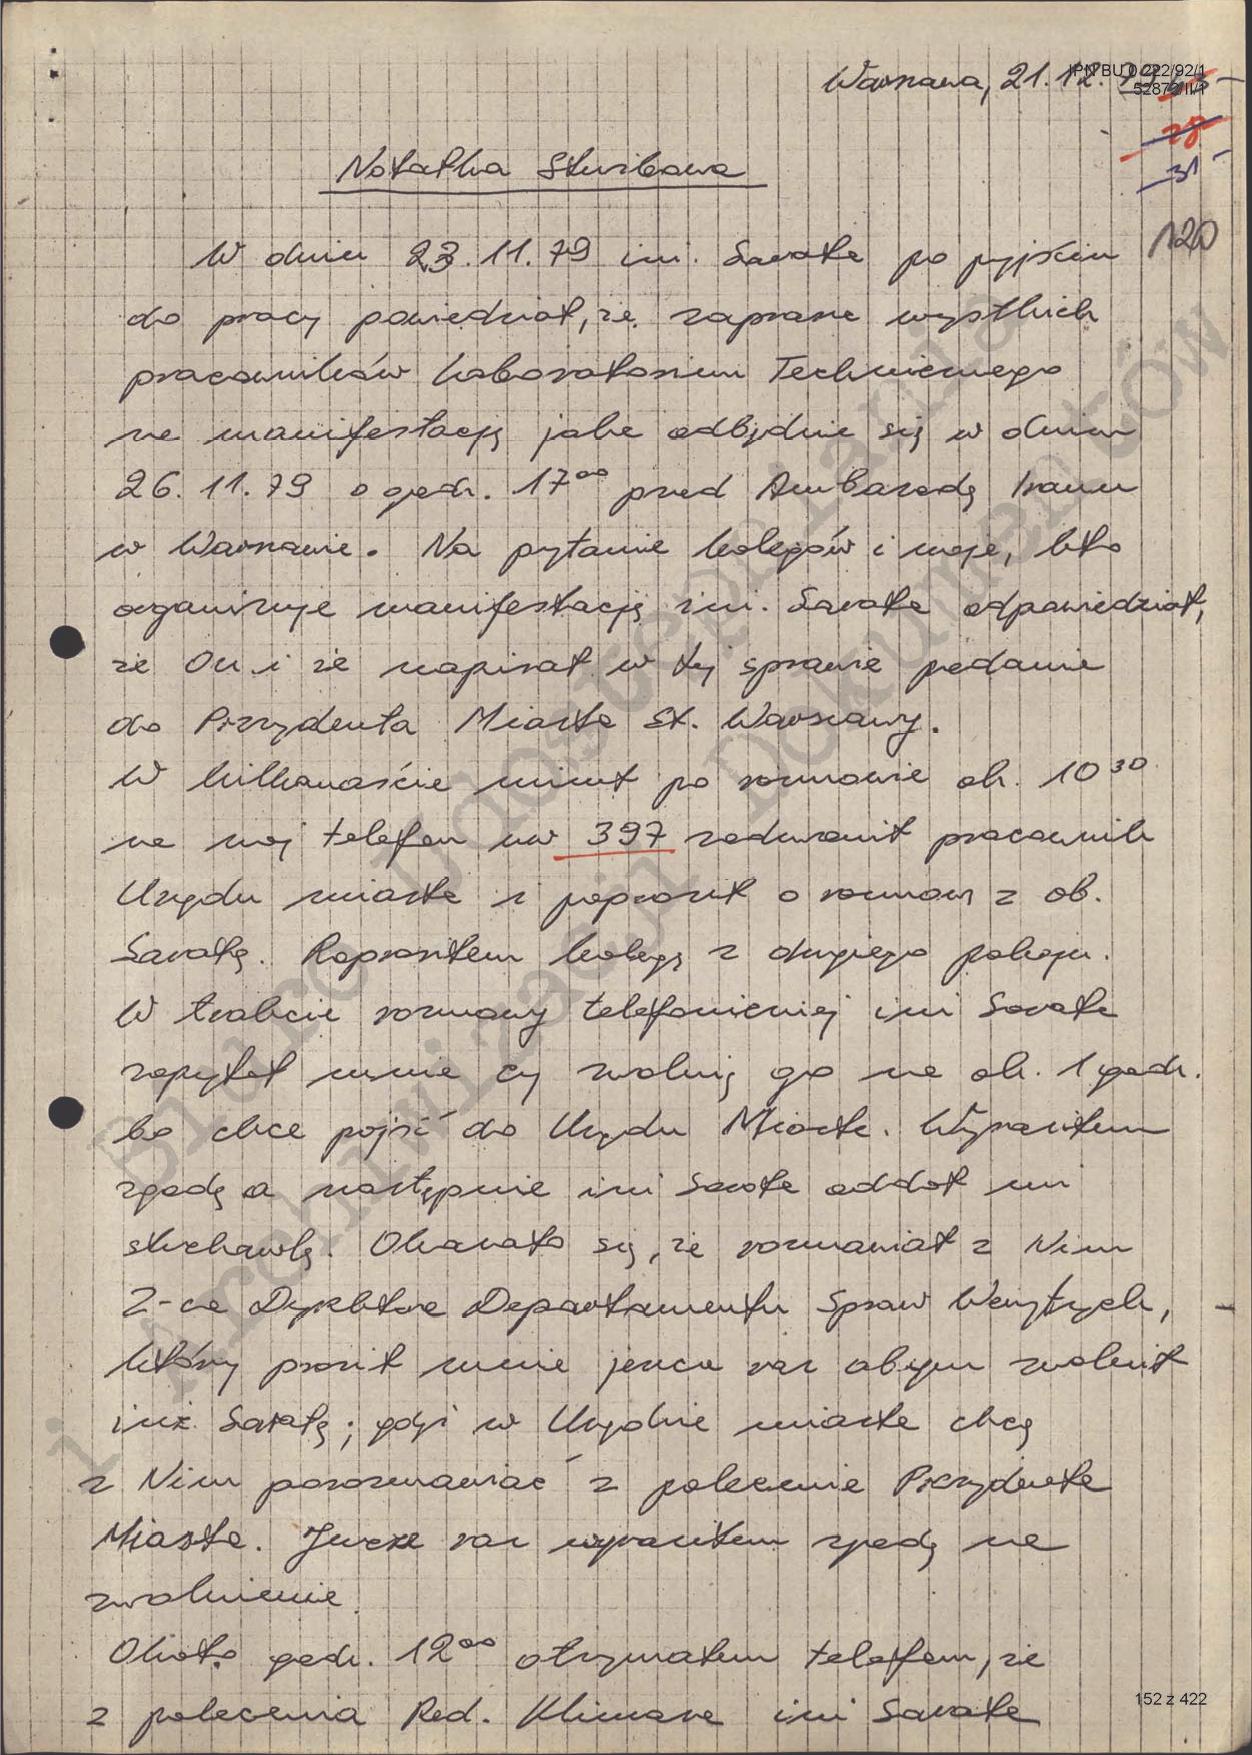 IPN BU 0 222/92/1
52872/II/1
Warszawa, 21.12.79
28
31
120
Notatka Służbowa
W dniu 23.11.79 inż. Sarata po przyjściu
do pracy powiedział, że zaprasza wszystkich
pracowników Laboratorium Technicznego
na manifestację jaka odbędzie się w dniu
26.11.79 o godz. 17⁰⁰ przed Ambasadą Iranu
w Warszawie. Na pytanie kolegów i moje, kto
organizuje manifestację inż. Sarata odpowiedział,
że On i że napisał w tej sprawie podanie
do Prezydenta Miasta St. Warszawy.
W kilkanaście minut po rozmowie ok. 10³⁰
na mój telefon nr 397 zadzwonił pracownik
Urzędu miasta i poprosił o rozmowę z ob.
Saratą. Poprosiłem kolegę z drugiego pokoju.
W trakcie rozmowy telefonicznej inż Sarata
zapytał mnie czy zwolnię go na ok. 1 godz.
bo chce pójść do Urzędu Miasta. Wyraziłem
zgodę a następnie inż Sarata oddał mi
słuchawkę. Okazało się, że rozmawiał z Nim
Z-ca Dyrektora Departamentu Spraw Wewnętrznych,
który prosił mnie jeszcze raz abym zwolnił
inż. Saratę; gdyż w Urzędzie miasta chcą
z Nim porozmawiać z polecenia Prezydenta
Miasta. Jeszcze raz wyraziłem zgodę na
zwolnienie.
Około godz. 12⁰⁰ otrzymałem telefon, że
z polecenia Red. Klimasa inż Sarata
152 z 422
Biuro Udostępniania
i Archiwizacji Dokumentów